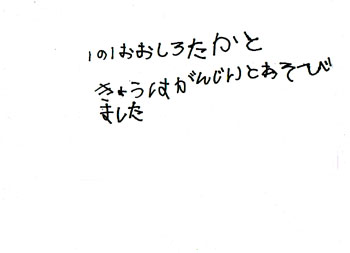 1の1おおしろたかと
きょうはがんじんとあそび
ました